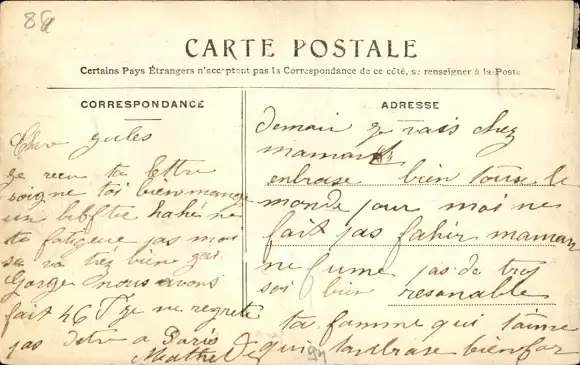 88
CARTE POSTALE
Certains Pays Étrangers n'acceptent pas la Correspondance de ce côté, se renseigner à la Poste
CORRESPONDANCE
Cher gules
ge recu ta lettre
soigne toi bien mange
un biftie hahé ne
te fatigeue pas moi
sa va trez bien
Gorge nous avons
fait 46 ge ne regrete
pas detre a Paris
ADRESSE
demain ge vais chez
maman
enbrase bien tous le
monde pour moi ne
fait pas fahir maman
ne fume pas de trop
soi bien resonable
ta famme qui t'aime
qui tanbrase bien for